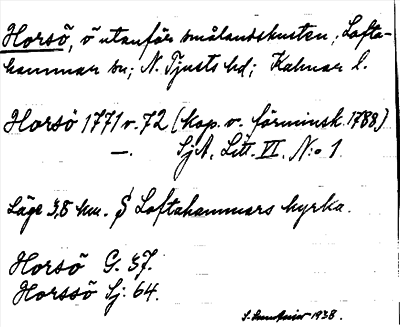 Horsö, ö utanför smålandskusten, Lofta-
hammar sn; N. Tjusts hd; Kalmar l.
Horsö 1771 o. 72 (kop. o. förminsk. 1788)
—. SjA. Litt. VI. N:o 1.
Läge 3,8 km. S Loftahammars kyrka.
Horsö G. 37.
Horssö Sj: 64.
1938.